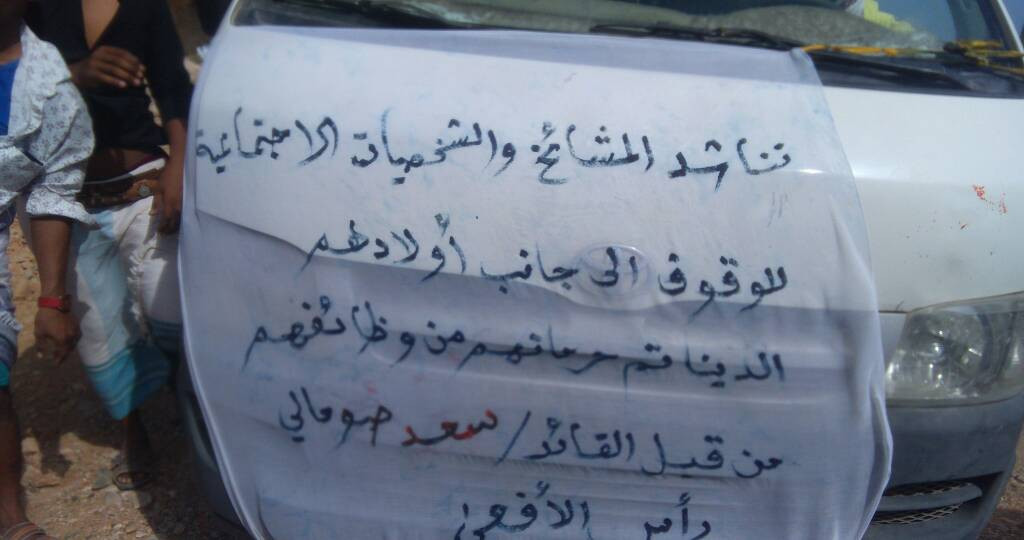 نناشد المشائخ والشخصيات الاجتماعية
للوقوف الى جانب أولادهم
الدين تم حرمانهم من وظائفهم
من قبل القائد / سعد صومالي
رأس الأفعى